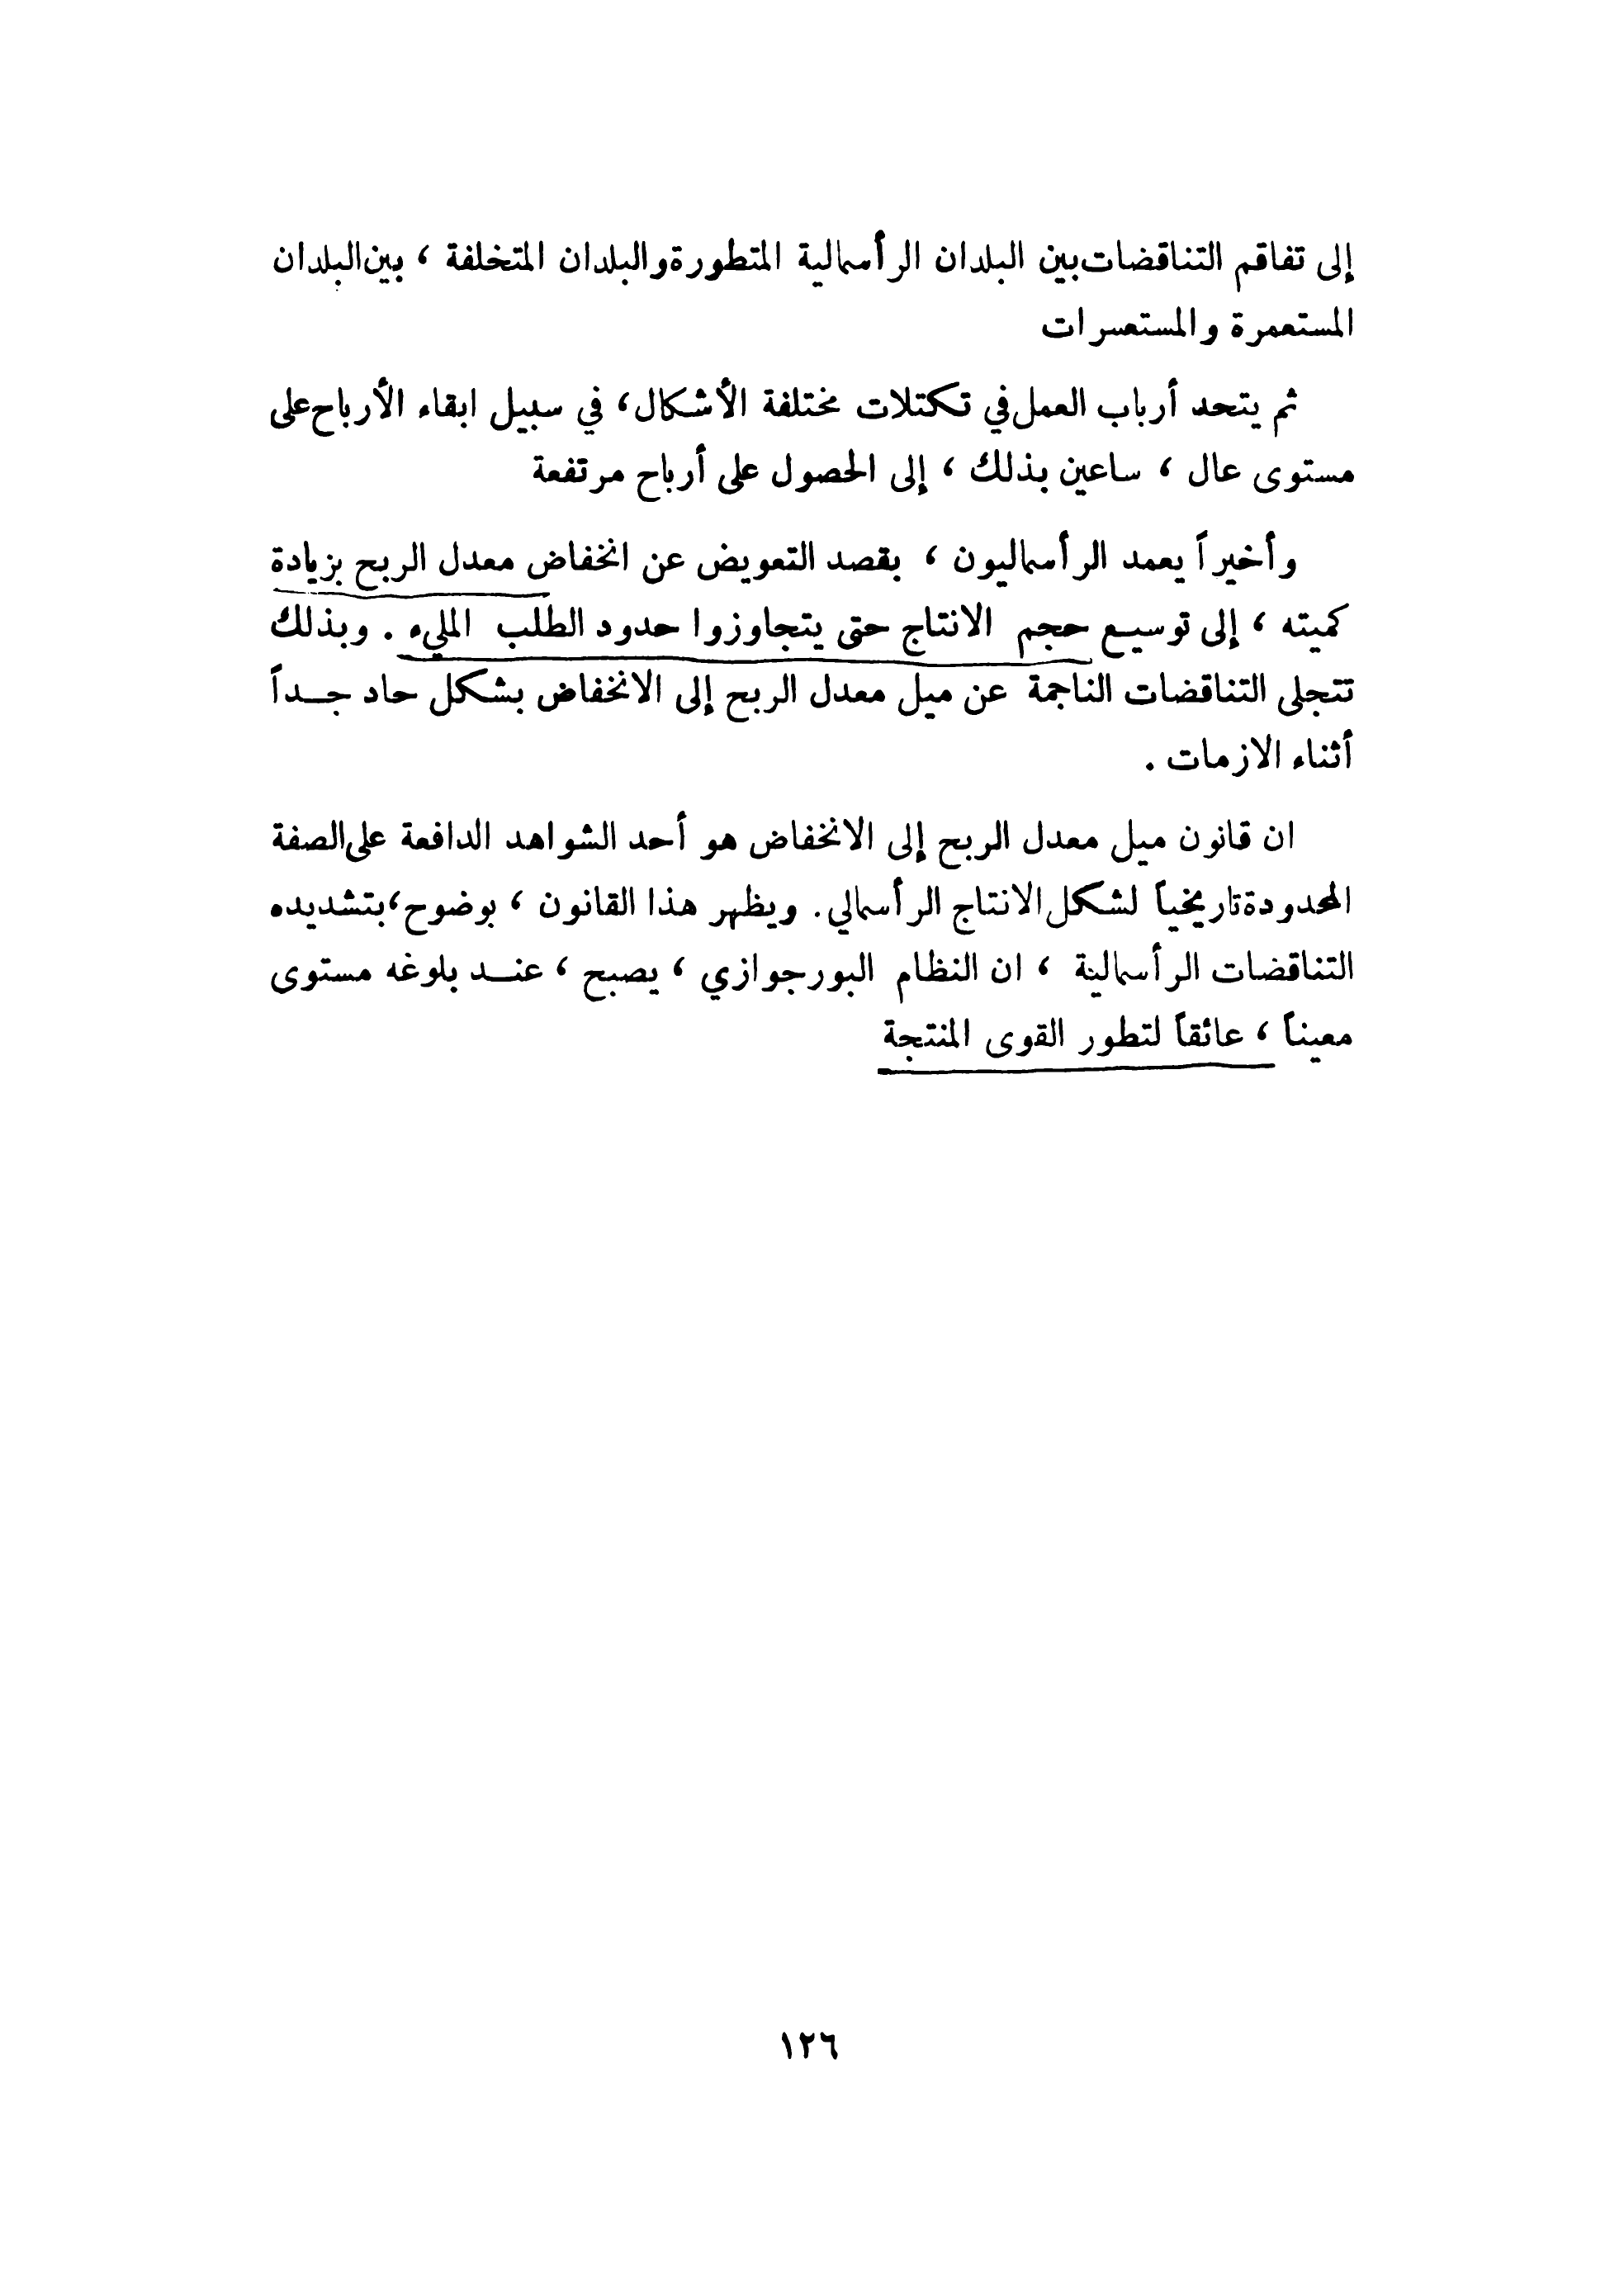 إلى تفاقم التناقضات بين البلدان الرأسمالية المتطورة والبلدان المتخلفة ، بين البلدان
المستعمرة والمستعمرات
ثم يتحد أرباب العمل في تكتلات مختلفة الأشكال ، في سبيل ابقاء الأرباح على
مستوى عال ، ساعين بذلك ، إلى الحصول على أرباح مرتفعة
وأخيراً يعمد الرأسماليون ، بقصد التعويض عن انخفاض معدل الربح بزيادة
كميته ، إلى توسيع حجم الانتاج حتى يتجاوزوا حدود الطلب المليء . وبذلك
تتجلى التناقضات الناجمة عن ميل معدل الربح إلى الانخفاض بشكل حاد جداً
أثناء الازمات .
ان قانون ميل معدل الربح إلى الانخفاض هو أحد الشواهد الدافعة على الصفة
المحدودة تاريخياً لشكل الانتاج الرأسمالي . ويظهر هذا القانون ، بوضوح ، بتشديده
التناقضات الرأسمالية ، ان النظام البورجوازي ، يصبح ، عند بلوغه مستوى
معيناً ، عائقاً لتطور القوى المنتجة
١٢٦